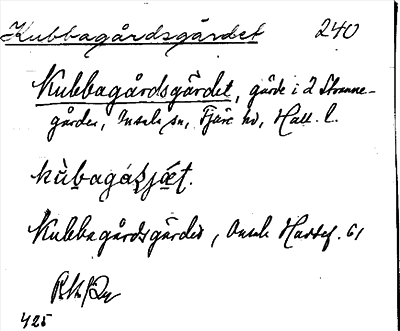 Kubbagårdsgärdet 240
Kubbagårdsgärdet, gärde i 2 Stranne-
gården, Onsala sn, Fjäre hd, Hall. l.
kùbagáʂjæt.
Kubbagårdsgärdet, Onsala
425